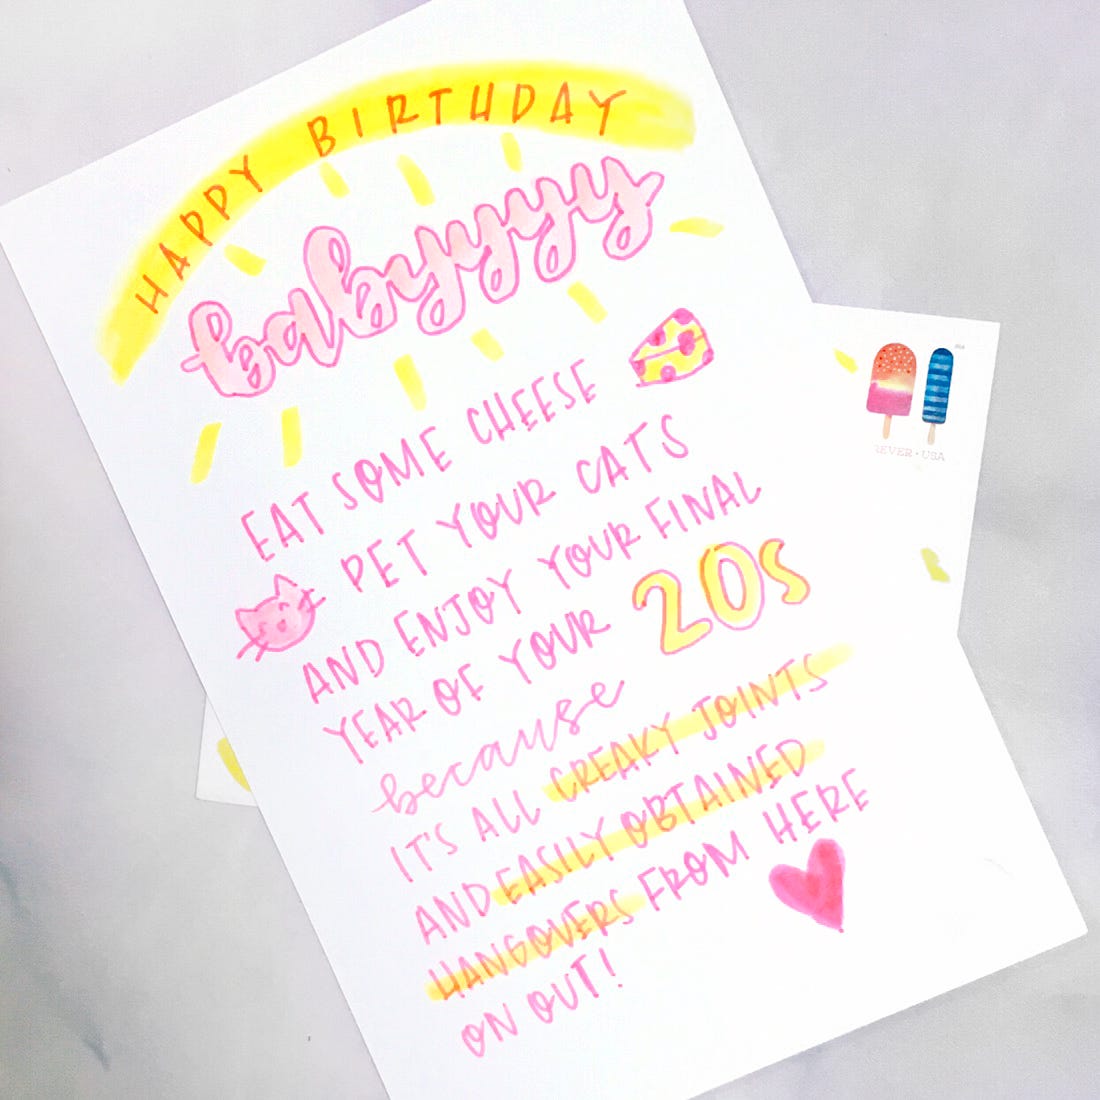 HAPPY BIRTHDAY
babyyyy
EAT SOME CHEESE
PET YOUR CATS
AND ENJOY YOUR FINAL
YEAR OF YOUR 20s
because
IT'S ALL CREAKY JOINTS
AND EASILY OBTAINED
HANGOVERS FROM HERE
ON OUT!
EVER • USA